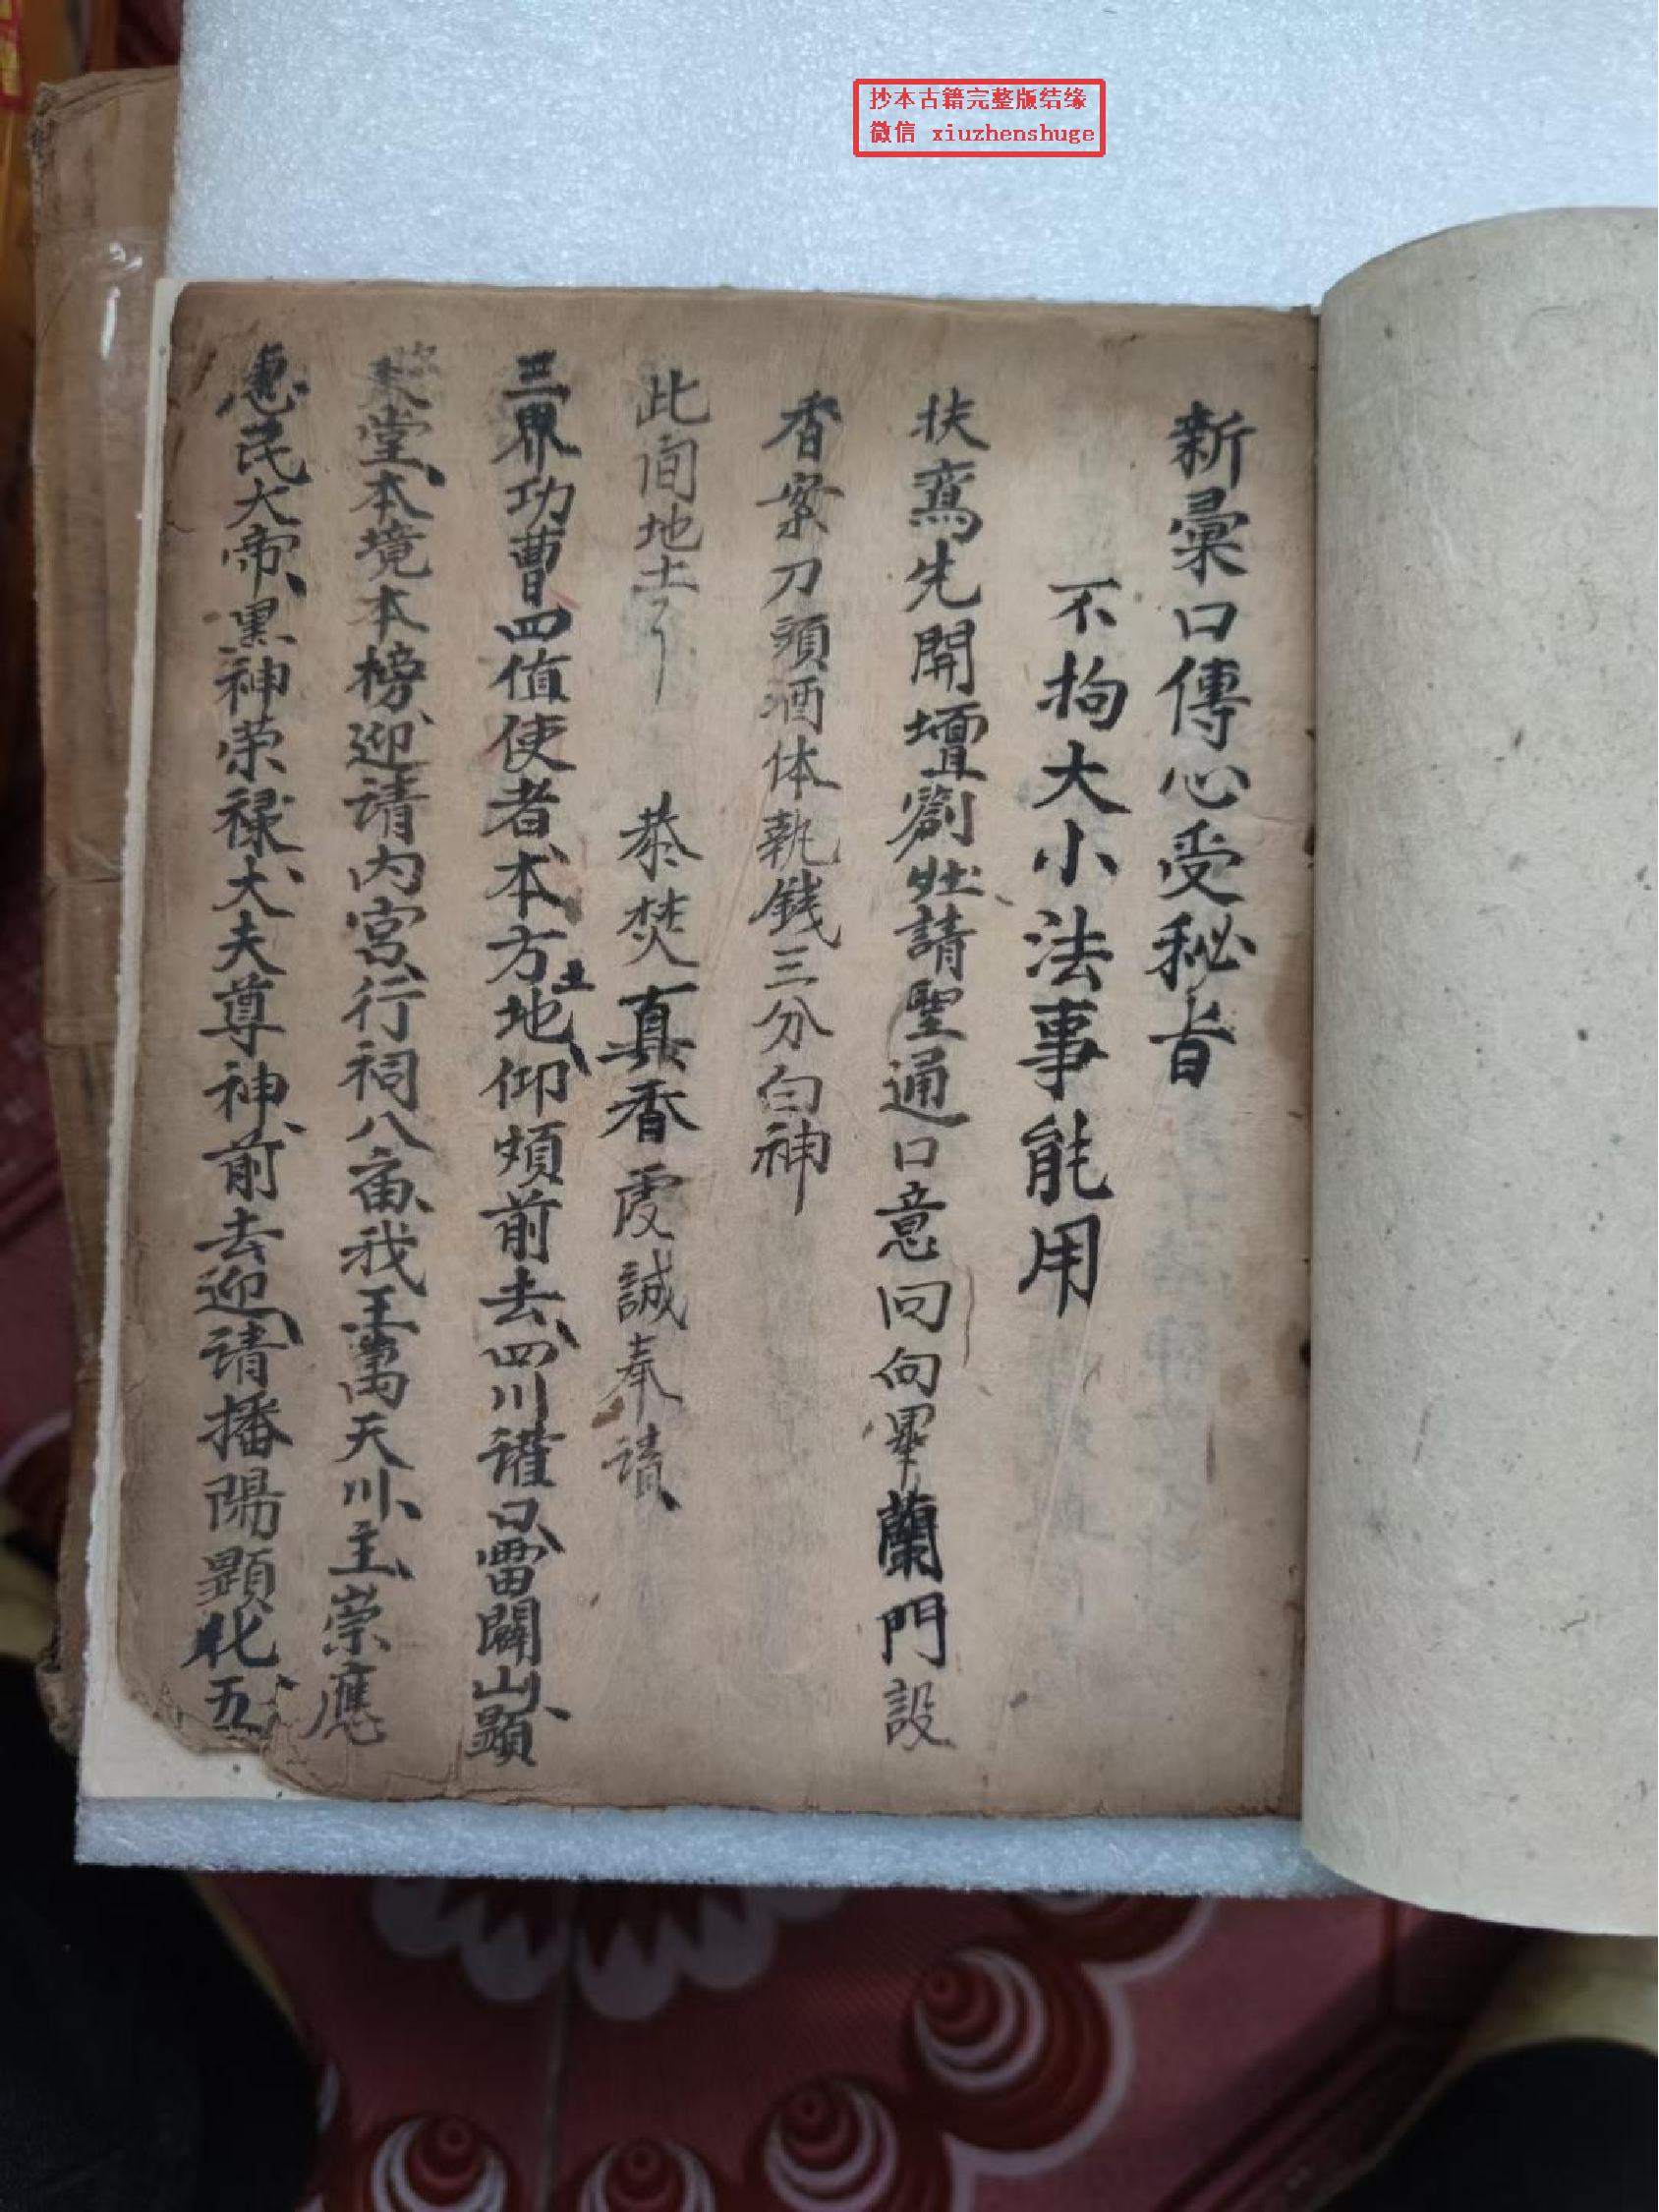 抄本古籍完整版结缘
微信 xiuzhenshuge
新彙口傳心受秘旨
不拘大小法事能用
扶鸞先開壇劄灶請聖通口意回向畢蘭門設
香案刀頭酒体執錢三分白神
此间地土 恭焚真香虔誠奉请
三界功曹四值使者本方地土仰煩前去四川謹口雷闢山顯
堂本境本榜迎请内宫行祠八庙我王萬天川主崇應
惠民大帝黑神荣禄大夫尊神前去迎请播陽顯化五